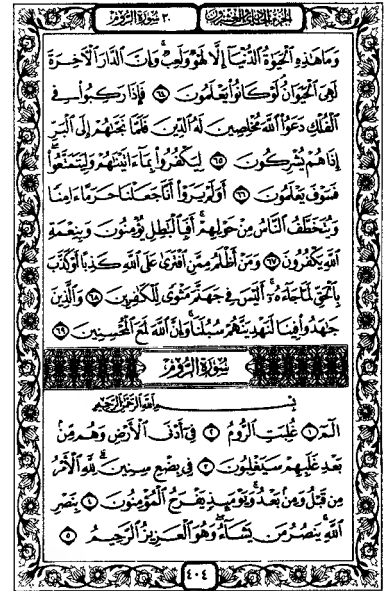 الجزء الحادي والعشرون ٣٠ سورة الروم
وَمَا هَٰذِهِ ٱلْحَيَوٰةُ ٱلدُّنْيَآ إِلَّا لَهْوٌ وَلَعِبٌ ۚ وَإِنَّ ٱلدَّارَ ٱلْءَاخِرَةَ
لَهِىَ ٱلْحَيَوَانُ ۚ لَوْ كَانُوا۟ يَعْلَمُونَ ٦٤ فَإِذَا رَكِبُوا۟ فِى
ٱلْفُلْكِ دَعَوُا۟ ٱللَّهَ مُخْلِصِينَ لَهُ ٱلدِّينَ فَلَمَّا نَجَّىٰهُمْ إِلَى ٱلْبَرِّ
إِذَا هُمْ يُشْرِكُونَ ٦٥ لِيَكْفُرُوا۟ بِمَآ ءَاتَيْنَٰهُمْ وَلِيَتَمَتَّعُوا۟ ۖ
فَسَوْفَ يَعْلَمُونَ ٦٦ أَوَلَمْ يَرَوْا۟ أَنَّا جَعَلْنَا حَرَمًا ءَامِنًا
وَيُتَخَطَّفُ ٱلنَّاسُ مِنْ حَوْلِهِمْ ۚ أَفَبِٱلْبَٰطِلِ يُؤْمِنُونَ وَبِنِعْمَةِ
ٱللَّهِ يَكْفُرُونَ ٦٧ وَمَنْ أَظْلَمُ مِمَّنِ ٱفْتَرَىٰ عَلَى ٱللَّهِ كَذِبًا أَوْ كَذَّبَ
بِٱلْحَقِّ لَمَّا جَآءَهُۥٓ ۚ أَلَيْسَ فِى جَهَنَّمَ مَثْوًى لِّلْكَٰفِرِينَ ٦٨ وَٱلَّذِينَ
جَٰهَدُوا۟ فِينَا لَنَهْدِيَنَّهُمْ سُبُلَنَا ۚ وَإِنَّ ٱللَّهَ لَمَعَ ٱلْمُحْسِنِينَ ٦٩
سُورَةُ ٱلرُّومِ
بِسْمِ ٱللَّهِ ٱلرَّحْمَٰنِ ٱلرَّحِيمِ
الٓمٓ ١ غُلِبَتِ ٱلرُّومُ ٢ فِىٓ أَدْنَى ٱلْأَرْضِ وَهُم مِّنۢ
بَعْدِ غَلَبِهِمْ سَيَغْلِبُونَ ٣ فِى بِضْعِ سِنِينَ ۗ لِلَّهِ ٱلْأَمْرُ
مِن قَبْلُ وَمِنۢ بَعْدُ ۚ وَيَوْمَئِذٍ يَفْرَحُ ٱلْمُؤْمِنُونَ ٤ بِنَصْرِ
ٱللَّهِ ۚ يَنصُرُ مَن يَشَآءُ ۖ وَهُوَ ٱلْعَزِيزُ ٱلرَّحِيمُ ٥
٤٠٤